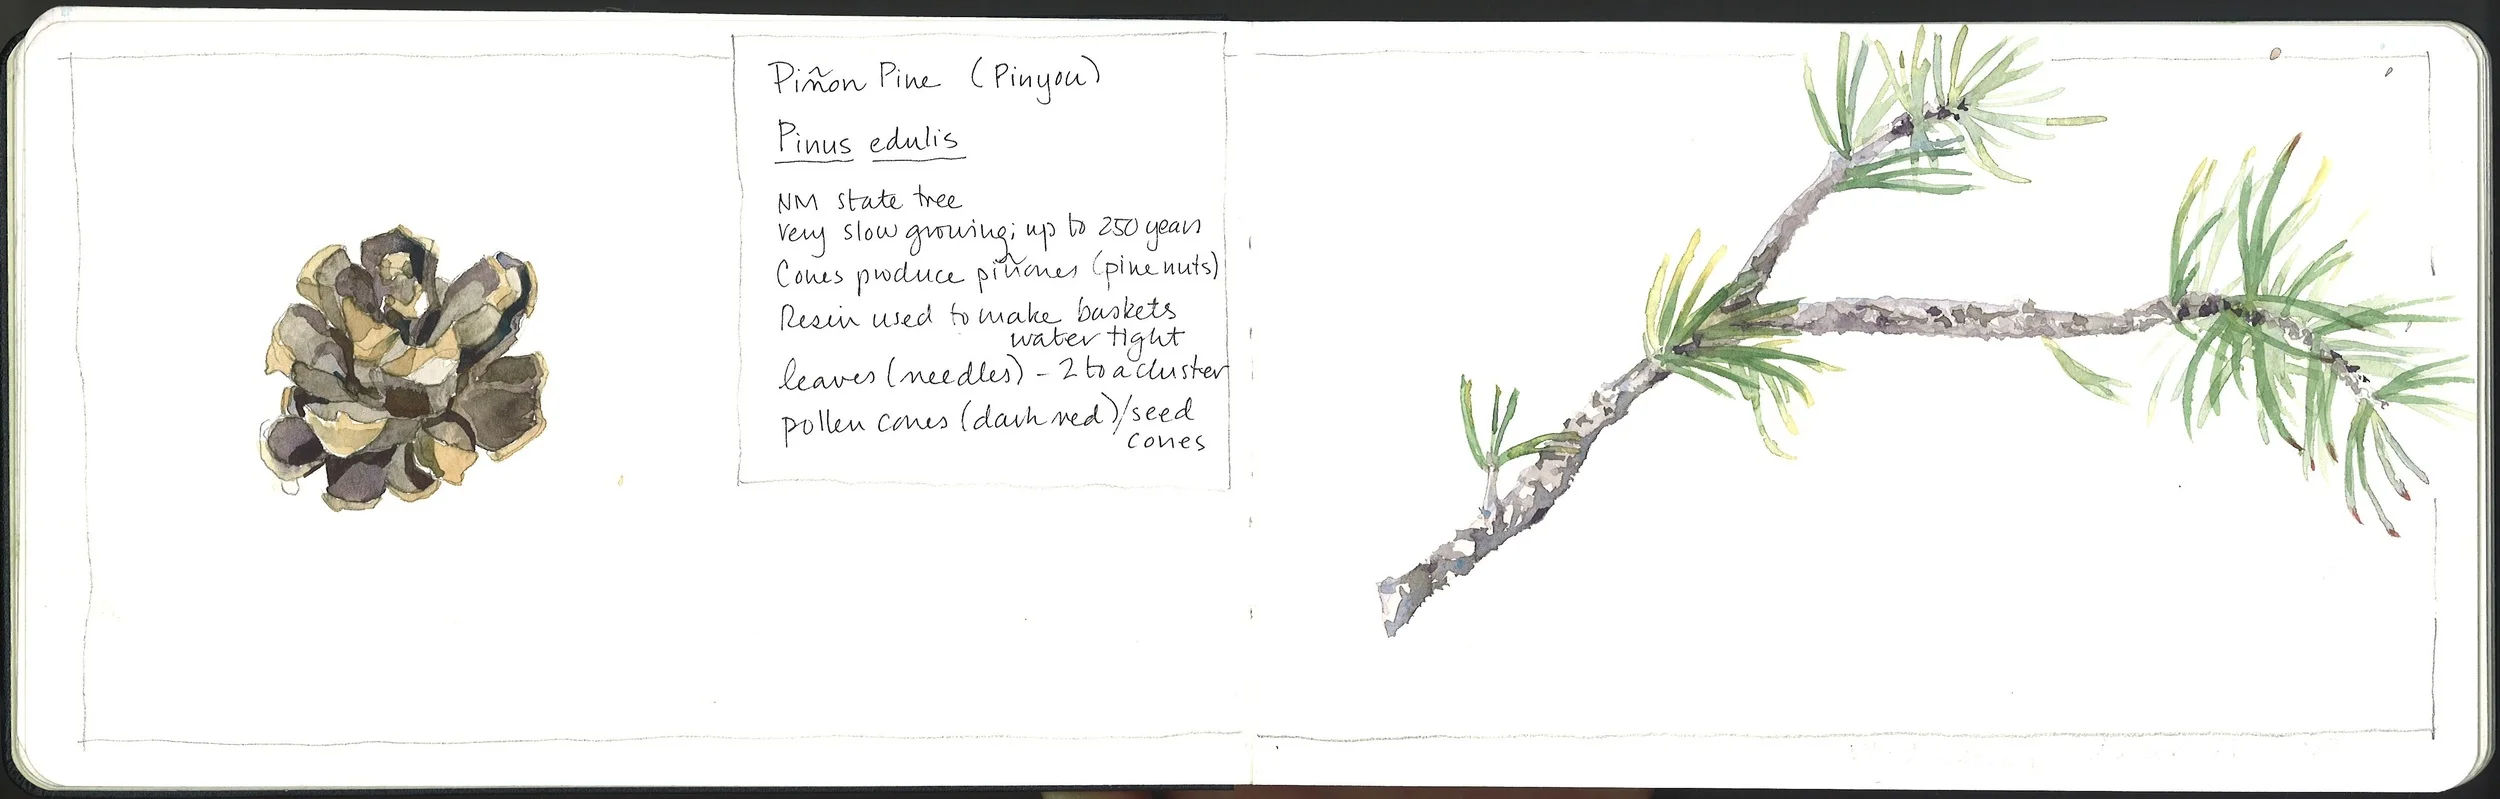 Piñon Pine (Pinyon)
Pinus edulis
NM state tree
Very slow growing; up to 250 years
Cones produce piñones (pine nuts)
Resin used to make baskets
water tight
leaves (needles) - 2 to a cluster
pollen cones (dark red)/seed
cones